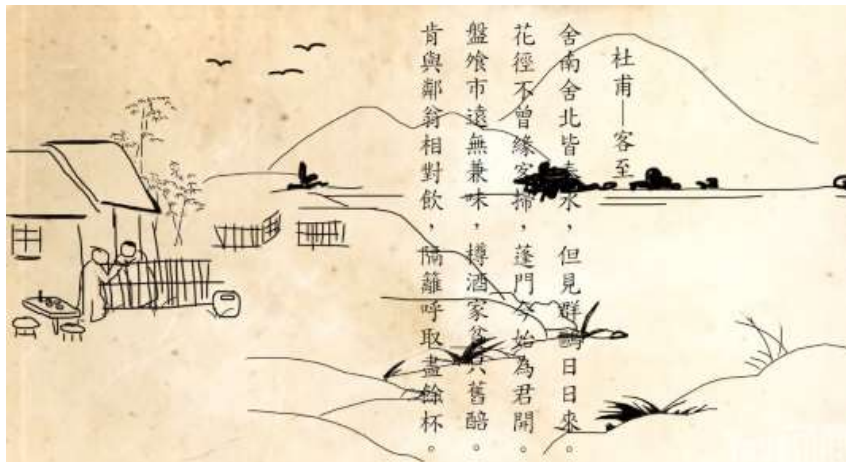 杜甫—客至
舍南舍北皆春水，但見群鷗日日來。
花徑不曾緣客掃，蓬門今始為君開。
盤飧市遠無兼味，樽酒家貧只舊醅。
肯與鄰翁相對飲，隔籬呼取盡餘杯。